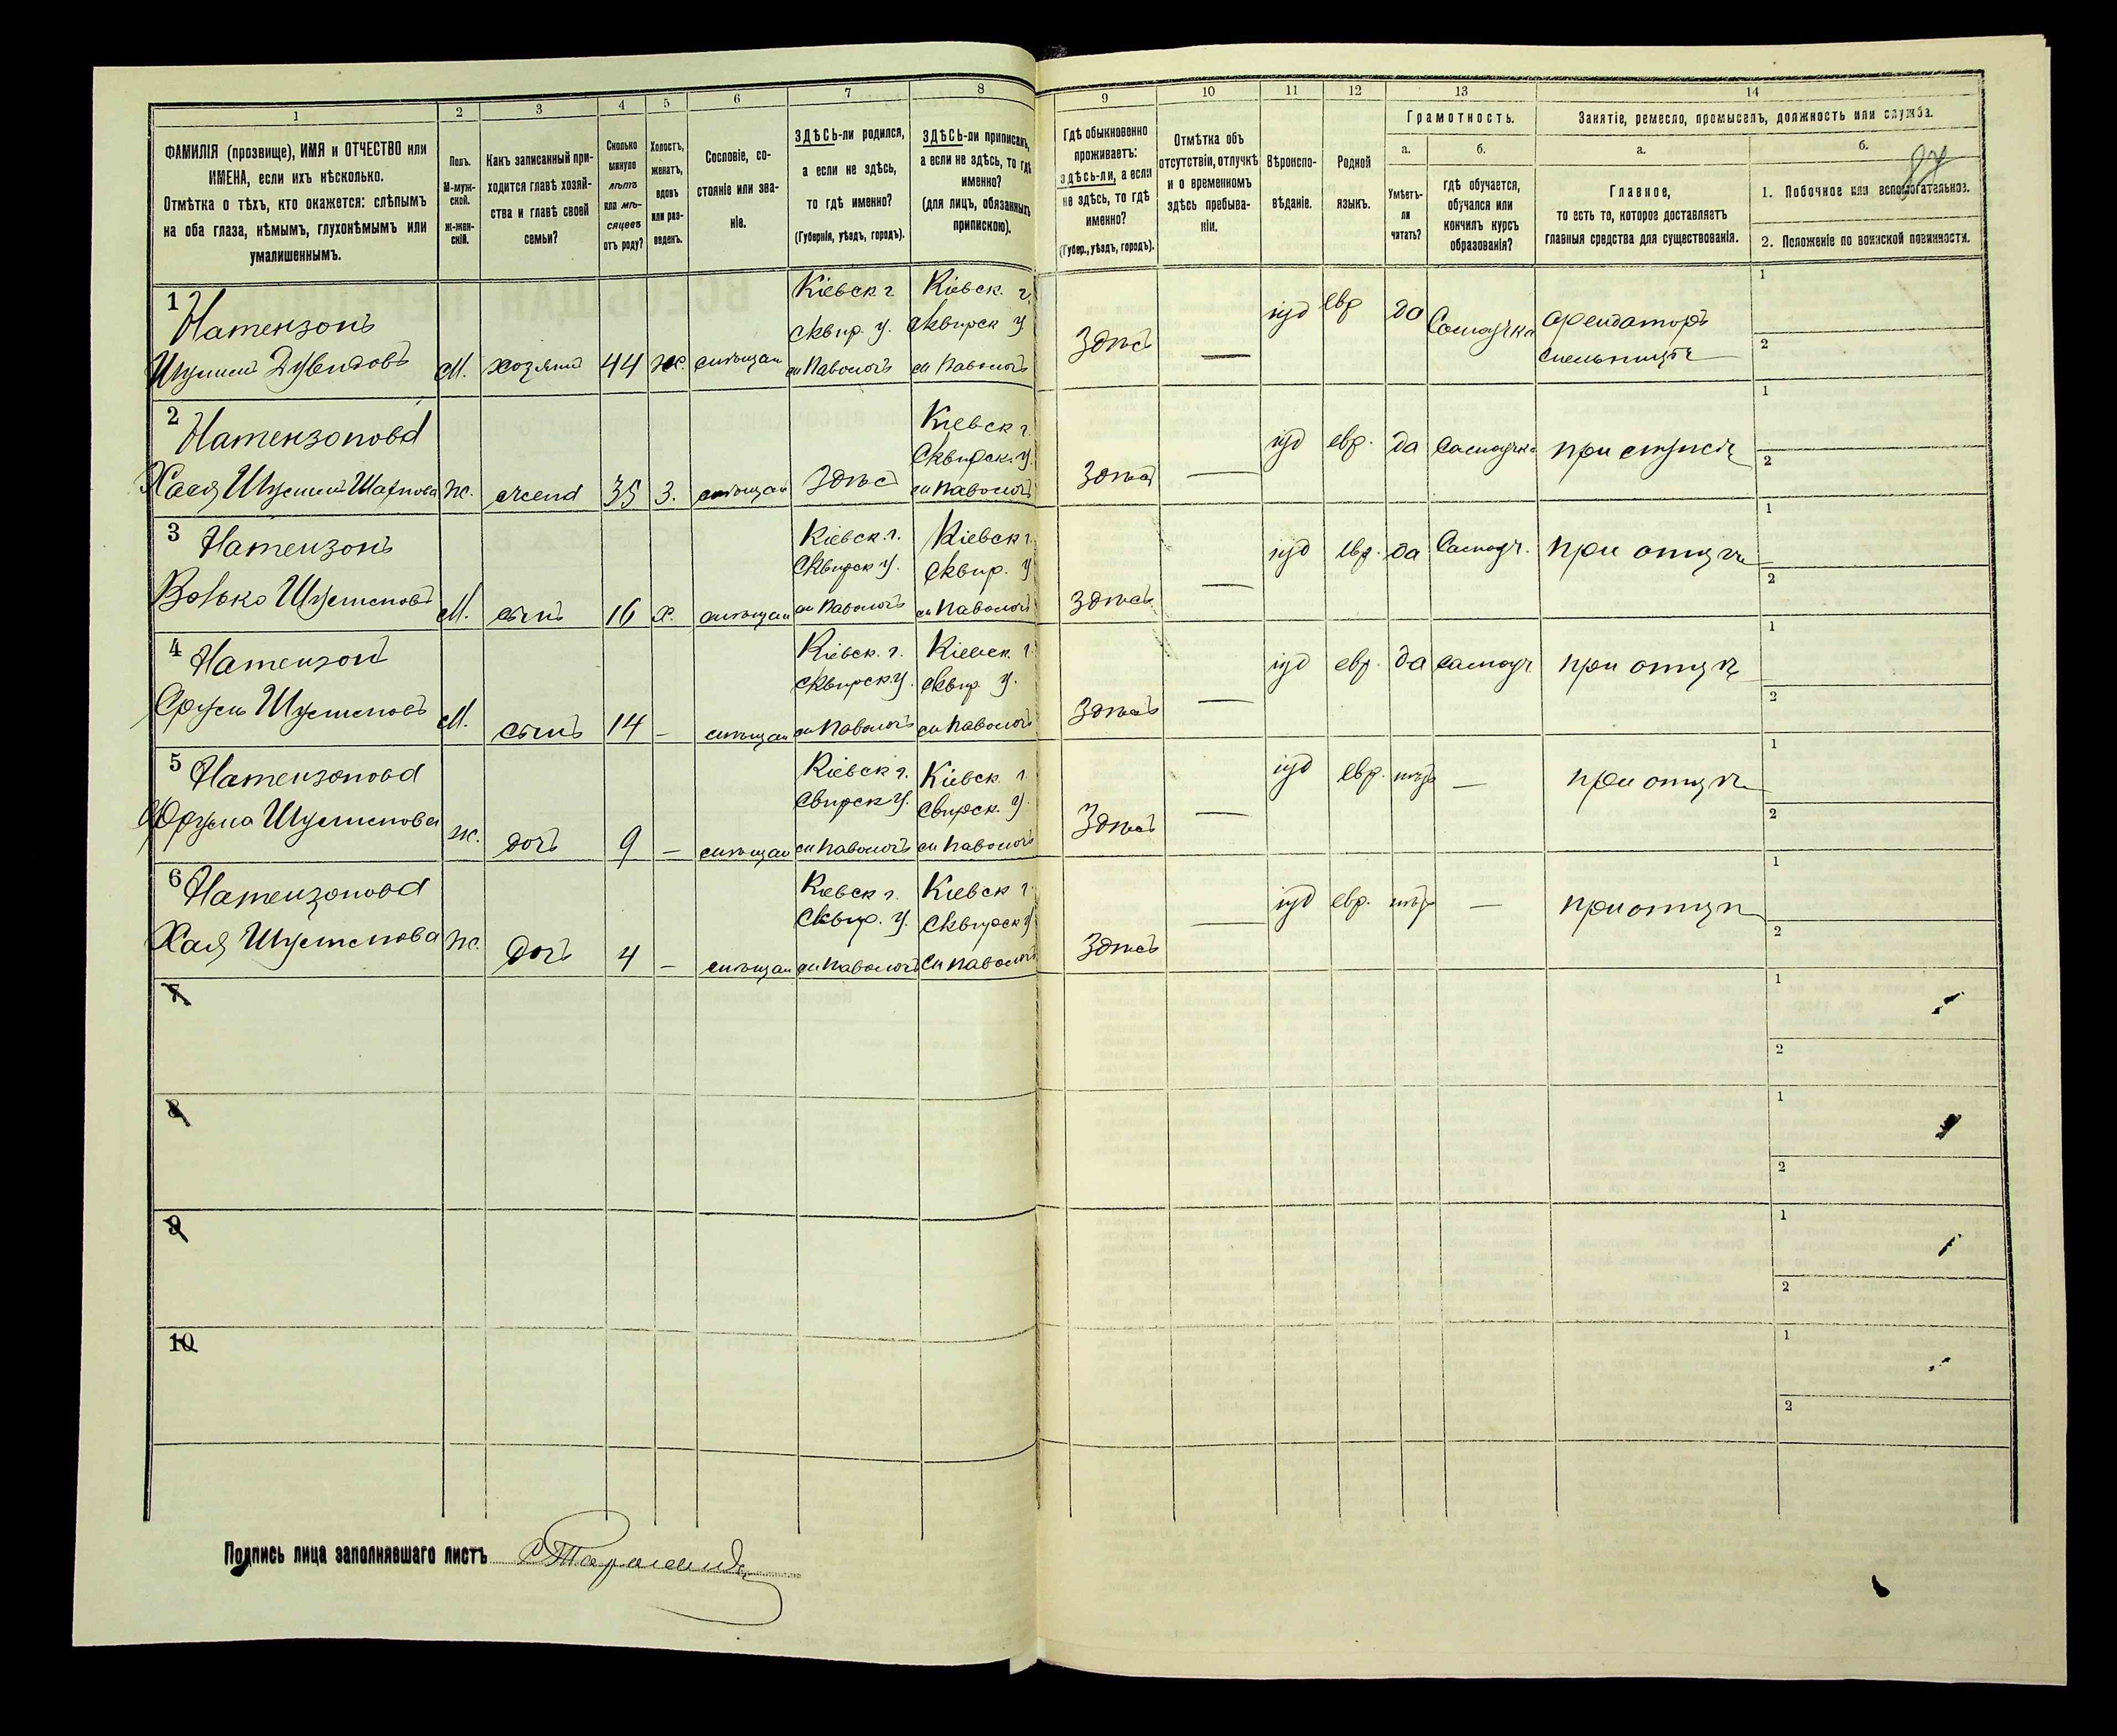 1 2 3 4 5 6 7 8 9 10 11 12 13 14
ФАМИЛІЯ (прозвище), ИМЯ и ОТЧЕСТВО или
ИМЕНА, если ихъ нѣсколько.
Отмѣтка о тѣхъ, кто окажется: слѣпымъ
на оба глаза, нѣмымъ, глухонѣмымъ или
умалишеннымъ.
Полъ.
М-муж-
ской.
Ж-жен-
скій.
Какъ записанный при-
ходится главѣ хозяй-
ства и главѣ своей
семьи?
Сколько
минуло
лѣтъ
или мѣ-
сяцевъ
отъ роду?
Холостъ,
женатъ,
вдовъ
или раз-
веденъ.
Сословіе, со-
стояніе или зва-
ніе.
ЗДѢСЬ-ли родился,
а если не здѣсь,
то гдѣ именно?
(Губернія, уѣздъ, городъ).
ЗДѢСЬ-ли приписанъ,
а если не здѣсь, то гдѣ
именно?
(для лицъ, обязанныхъ
припискою).
Гдѣ обыкновенно
проживаетъ:
здѣсь-ли, а если
не здѣсь, то гдѣ
именно?
(Губер., уѣздъ, городъ).
Отмѣтка объ
отсутствіи, отлучкѣ
и о временномъ
здѣсь пребыва-
ніи.
Вѣроиспо-
вѣданіе.
Родной
языкъ.
Грамотность.
а.
Умѣетъ-
ли
читать?
б.
гдѣ обучается,
обучался или
кончилъ курсъ
образованія?
Занятіе, ремесло, промыселъ, должность или служба.
а.
Главное,
то есть то, которое доставляетъ
главныя средства для существованія.
б.
87
1. Побочное или вспомогательное.
2. Положеніе по воинской повинности.
1 Натензонъ Кіевск г Кіевск. г. іуд евр да Самоучка арендаторъ 1
Сквир. у. Сквирск у Здѣсь — 2
М. хозяинъ 44 ж. мѣщан м Паволочь м Паволочь
2 Натензонова Кіевск г. іуд евр. да Самоучка при мужѣ 1
Сквирск. у. 2
Хася Ж. жена 35 З. мѣщан Здѣсь м Паволочь Здѣсь —
3 Натензонъ Кіевск. г. Кіевск г. іуд евр. да Самоуч. при отцѣ 1
Сквирск у. Сквир. у — 2
Волько М. сынъ 16 х. мѣщан м Паволочь м Паволочь Здѣсь
4 Натензонъ Кіевск. г. Кіевск. г. іуд евр. да самоуч при отцѣ 1
Сквирск у. Сквир. у. — 2
Сруль М. сынъ 14 – мѣщан м Паволочь м Паволочь Здѣсь
5 Натензонова Кіевск г. Кіевск г іуд евр. нѣтъ — при отцѣ 1
Свирск у. Свирск. у. — 2
Ж. дочь 9 – мѣщан м Паволочь м Паволочь Здѣсь
6 Натензонова Кіевск г. Кіевск г. іуд евр. нѣтъ — при отцѣ 1
Сквир. у. Сквирск у — 2
Хая Ж. дочь 4 – мѣщан м Паволочь м Паволочь Здѣсь
7 1
2
8 1
2
9 1
2
10 1
2
Подпись лица заполнявшаго листъ